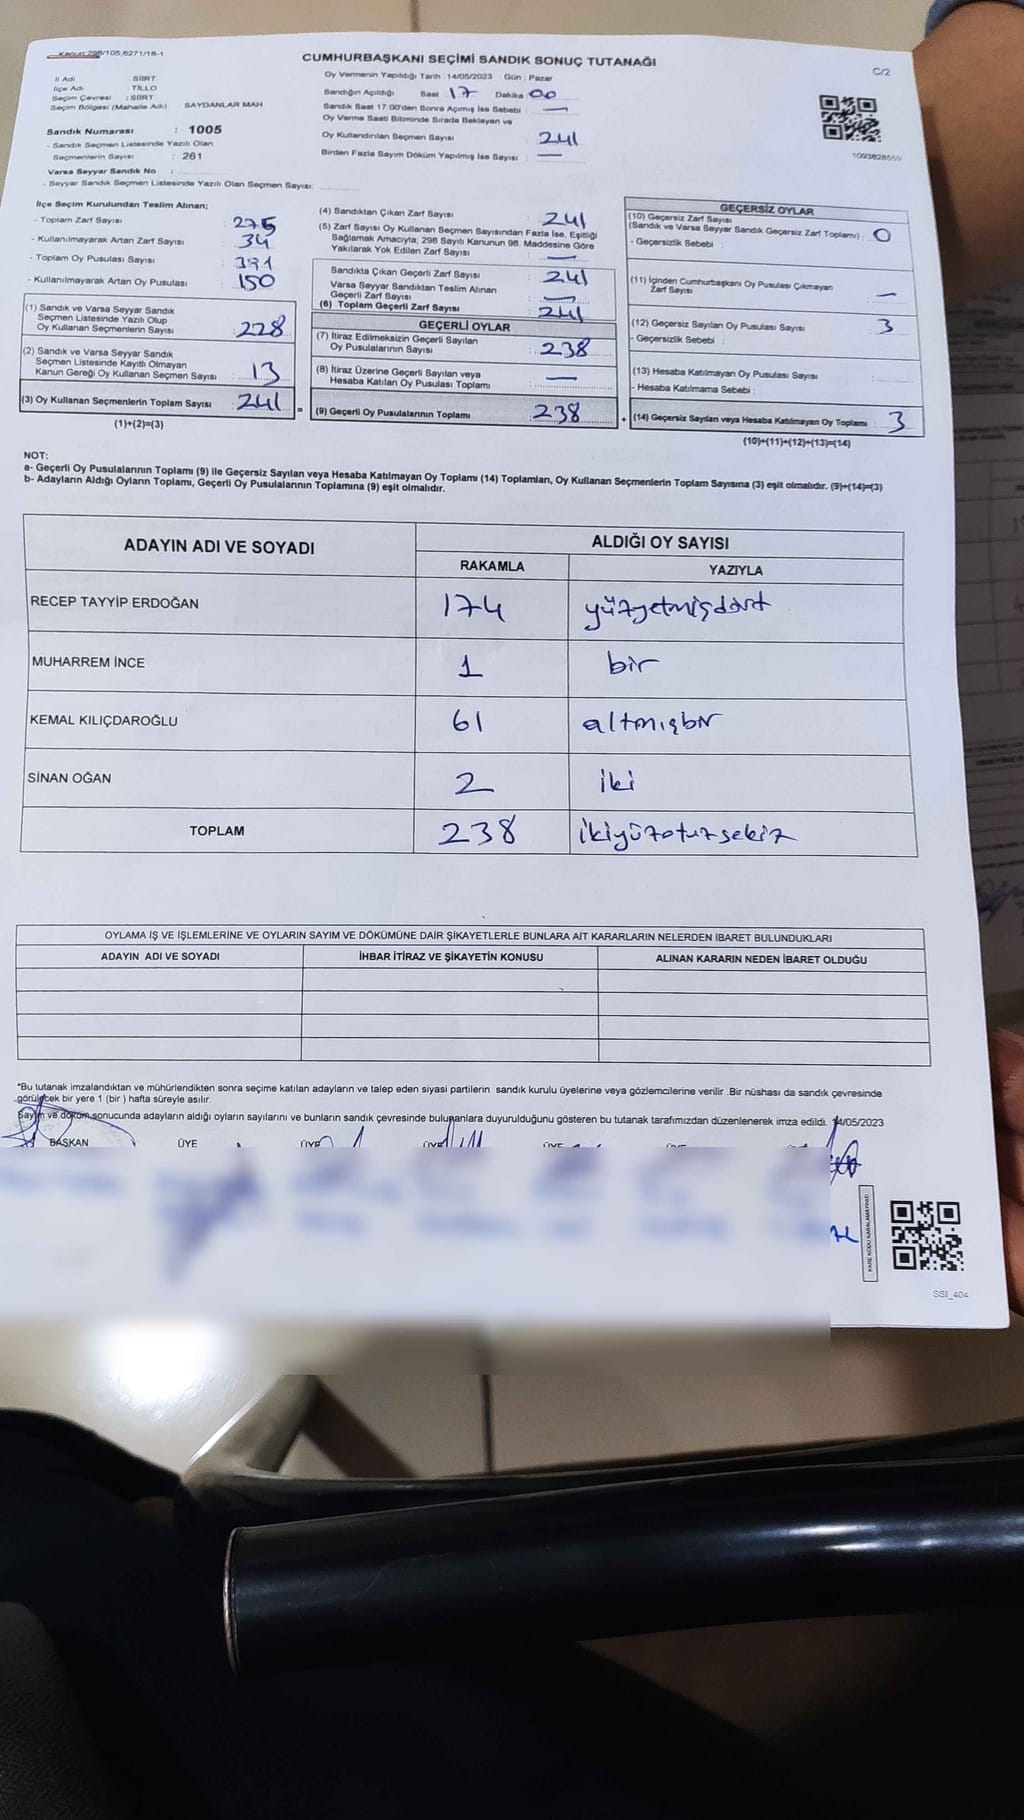 Kanun 298/105,6271/18-1
CUMHURBAŞKANI SEÇİMİ SANDIK SONUÇ TUTANAĞI
C/2
İl Adı : SİİRT
İlçe Adı : TİLLO
Seçim Çevresi : SİİRT
Seçim Bölgesi (Mahalle Adı) SAYDANLAR MAH
Sandık Numarası : 1005
- Sandık Seçmen Listesinde Yazılı Olan
Seçmenlerin Sayısı : 261
Varsa Seyyar Sandık No :
- Seyyar Sandık Seçmen Listesinde Yazılı Olan Seçmen Sayısı:
Oy Vermenin Yapıldığı Tarih : 14/05/2023 Gün : Pazar
Sandığın Açıldığı Saat 17 Dakika : 00
Sandık Saat 17:00'den Sonra Açımış İse Sebebi : —
Oy Verme Saati Bitiminde Sırada Bekleyen ve
Oy Kullandırılan Seçmen Sayısı : 241
Birden Fazla Sayım Döküm Yapılmış İse Sayısı : —
1093828569
İlçe Seçim Kurulundan Teslim Alınan;
- Toplam Zarf Sayısı : 275
- Kullanılmayarak Artan Zarf Sayısı : 34
- Toplam Oy Pusulası Sayısı : 391
- Kullanılmayarak Artan Oy Pusulası : 150
(1) Sandık ve Varsa Seyyar Sandık
Seçmen Listesinde Yazılı Olup
Oy Kullanan Seçmenlerin Sayısı : 228
(2) Sandık ve Varsa Seyyar Sandık
Seçmen Listesinde Kayıtlı Olmayan
Kanun Gereği Oy Kullanan Seçmen Sayısı : 13
(3) Oy Kullanan Seçmenlerin Toplam Sayısı : 241 =
(1)+(2)=(3)
(4) Sandıktan Çıkan Zarf Sayısı : 241
(5) Zarf Sayısı Oy Kullanan Seçmen Sayısından Fazla İse, Eşitliği
Sağlamak Amacıyla; 298 Sayılı Kanunun 98. Maddesine Göre
Yakılarak Yok Edilen Zarf Sayısı : —
Sandıkta Çıkan Geçerli Zarf Sayısı : 241
Varsa Seyyar Sandıktan Teslim Alınan
Geçerli Zarf Sayısı : —
(6) Toplam Geçerli Zarf Sayısı : 241
GEÇERLİ OYLAR
(7) İtiraz Edilmeksizin Geçerli Sayılan
Oy Pusulalarının Sayısı : 238
(8) İtiraz Üzerine Geçerli Sayılan veya
Hesaba Katılan Oy Pusulası Toplamı : —
(9) Geçerli Oy Pusulalarının Toplamı : 238 +
GEÇERSİZ OYLAR
(10) Geçersiz Zarf Sayısı
(Sandık ve Varsa Seyyar Sandık Geçersiz Zarf Toplamı) : 0
- Geçersizlik Sebebi :
(11) İçinden Cumhurbaşkanı Oy Pusulası Çıkmayan
Zarf Sayısı : —
(12) Geçersiz Sayılan Oy Pusulası Sayısı : 3
- Geçersizlik Sebebi :
(13) Hesaba Katılmayan Oy Pusulası Sayısı :
- Hesaba Katılmama Sebebi :
(14) Geçersiz Sayılan veya Hesaba Katılmayan Oy Toplamı : 3
(10)+(11)+(12)+(13)=(14)
NOT:
a- Geçerli Oy Pusulalarının Toplamı (9) ile Geçersiz Sayılan veya Hesaba Katılmayan Oy Toplamı (14) Toplamları, Oy Kullanan Seçmenlerin Toplam Sayısına (3) eşit olmalıdır. (9)+(14)=(3)
b- Adayların Aldığı Oyların Toplamı, Geçerli Oy Pusulalarının Toplamına (9) eşit olmalıdır.
ADAYIN ADI VE SOYADI ALDIĞI OY SAYISI
RAKAMLA YAZIYLA
RECEP TAYYİP ERDOĞAN 174 yüzyetmişdört
MUHARREM İNCE 1 bir
KEMAL KILIÇDAROĞLU 61 altmışbir
SİNAN OĞAN 2 iki
TOPLAM 238 ikiyüzotuzsekiz
OYLAMA İŞ VE İŞLEMLERİNE VE OYLARIN SAYIM VE DÖKÜMÜNE DAİR ŞİKAYETLERLE BUNLARA AİT KARARLARIN NELERDEN İBARET BULUNDUKLARI
ADAYIN ADI VE SOYADI İHBAR İTİRAZ VE ŞİKAYETİN KONUSU ALINAN KARARIN NEDEN İBARET OLDUĞU
*Bu tutanak imzalandıktan ve mühürlendikten sonra seçime katılan adayların ve talep eden siyasi partilerin sandık kurulu üyelerine veya gözlemcilerine verilir. Bir nüshası da sandık çevresinde
görülecek bir yere 1 (bir ) hafta süreyle asılır.
Sayım ve döküm sonucunda adayların aldığı oyların sayılarını ve bunların sandık çevresinde bulunanlara duyurulduğunu gösteren bu tutanak tarafımızdan düzenlenerek imza edildi. 14/05/2023
BAŞKAN ÜYE ÜYE ÜYE ÜYE
SSİ_404